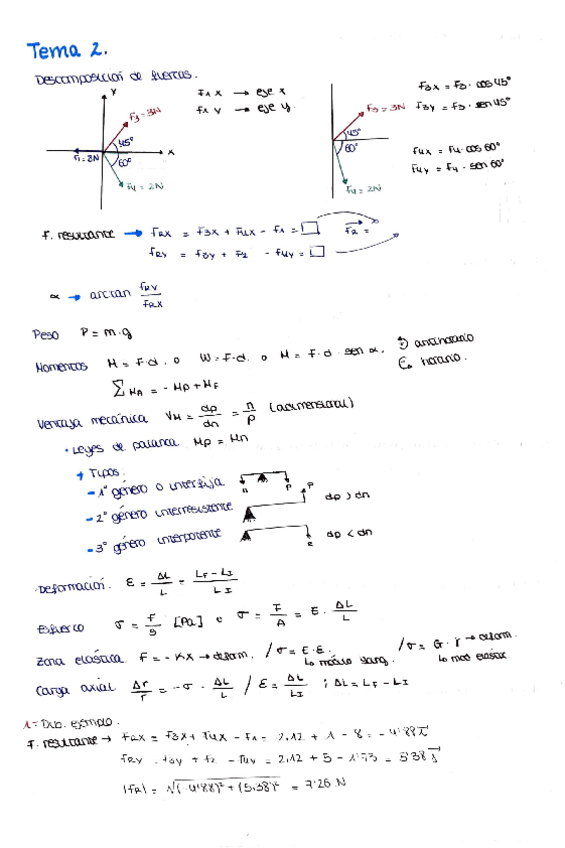 Tema 2.
Descomposición de fuerzas.
y
F3 = 3N
45°
x
60°
F1 = 8N
F4 = 2N
F1 x → eje x
F1 y → eje y.
F3 = 3N
45°
60°
F4 = 2N
F3x = F3 · cos 45°
F3y = F3 · sen 45°
F4x = F4 · cos 60°
F4y = F4 · sen 60°
F. resultante → FRX = F3X + F4X - F1 = □ FR =
FRY = F3Y + F2 - F4Y = □
α → arctan FRY / FRX
Peso P = m · g
Momentos M = F·d. o W = F·d. o M = F·d · sen α.
antihorario
horario.
∑ MA = - MP + MF
Ventaja mecánica VM = dp / dn = n / p (adimensional)
• Leyes de palanca Mp = Mn
Tipos.
- 1° género o interfija
n P
- 2° género interresistente
P
dp > dn
- 3° género interpotente
R
dp < dn
Deformación. ε = ΔL / L = LF - LI / LI
Esfuerzo σ = F / S [Pa] o σ = F / A = E · ΔL / L
Zona elástica F = - K·X → deform. / σ = E·ε.
↳ módulo Yang.
/ σ = G · γ → deform.
↳ mod elástic
Carga axial Δr / r = - σ · ΔL / L / ε = ΔL / LI ; ΔL = LF - LI
F. resultante → FRX = F3X + F4X - F1 = 2,12 + 1 - 8 = - 4'88
FRY = F3Y + F2 - F4Y = 2,12 + 5 - 1'73 = 5'38
|FR| = √(-4'88)² + (5,38)² = 7'26 N